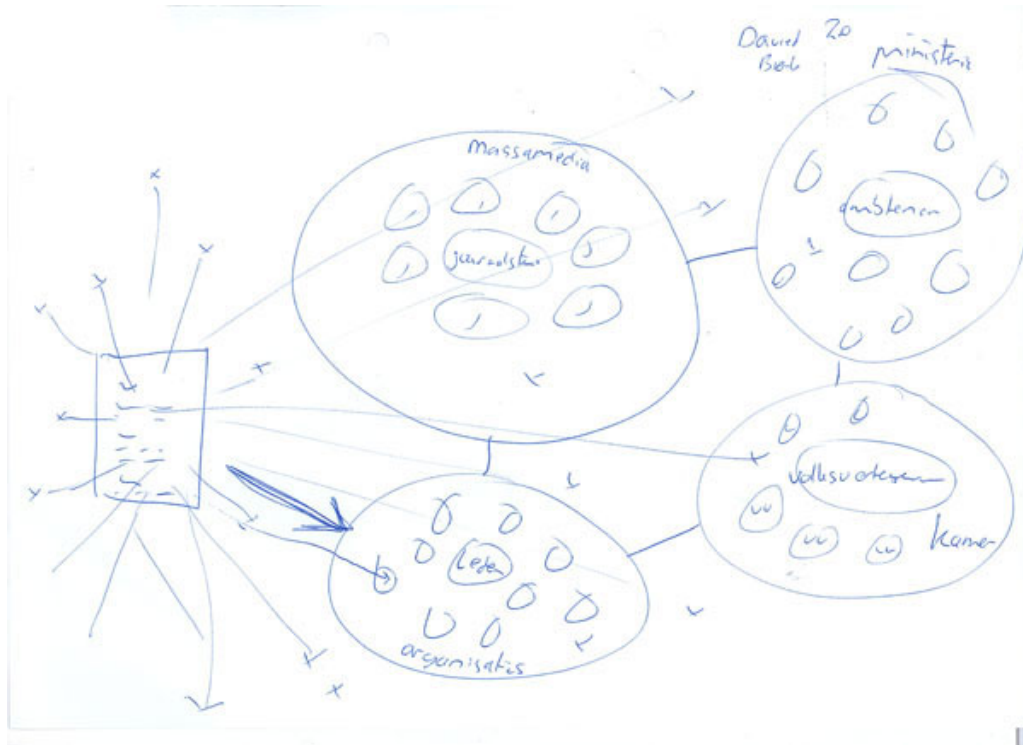 David 20
ministerie
massamedia
journalisten
ambtenaren
volksvertegenw
vv
vv
vv
kamer
leden
organisaties